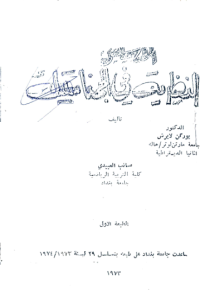 النظريات في الجناستك
تأليف
الدكتور
جامعة مارتن لوثر/هاله
المانيا الديمقراطية
صائب العبيدي
كلية التربية الرياضية
جامعة بغداد
الطبعة الاولى
ساعدت جامعة بغداد على طبعه بتسلسل ٢٩ لسنة ١٩٧٣/١٩٧٤
١٩٧٣